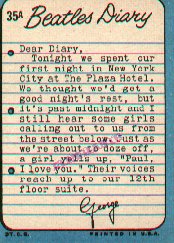 35A Beatles Diary
Dear Diary,
Tonight we spent our
first night in New York
City at The Plaza Hotel.
We thought we'd get a
good night's rest, but
it's past midnight and I
still hear some girls
calling out to us from
the street below. Just as
we're about to doze off,
a girl yells up, "Paul,
I love you." Their voices
reach up to our 12th
floor suite.
George
PRINTED IN U.S.A.